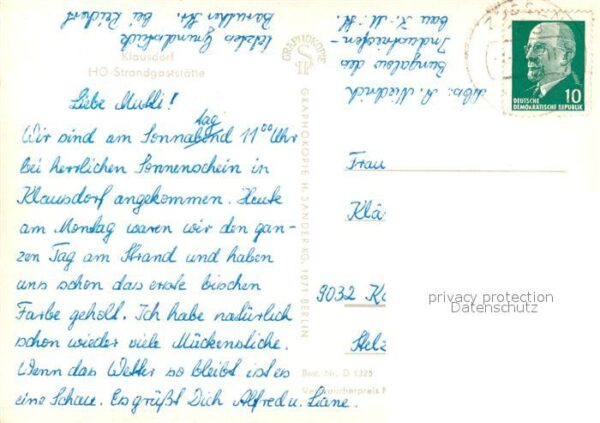 Klausdorf
HO-Strandgaststätte
Liebe Mutti!
Wir sind am Sonnabend tag 11⁰⁰ Uhr
bei herrlichen Sonnenschein in
Klausdorf angekommen. Heute
am Montag waren wir den gan-
zen Tag am Strand und haben
uns schon das erste bischen
Farbe geholt. Ich habe natürlich
schon wieder viele Mückenstiche.
Wenn das Wetter so bleibt ist es
eine Schau. Es grüßt Dich Alfred u. Liane.
Abs. A. Niedrich
Bungalow des
Industrieofen-
bau K.-M.-St.
letztes Grundstück
Baruther Str.
bei Reichert
GRAPHOKOPIE
GRAPHOKOPIE H. SANDER KG, 1071 BERLIN
DEUTSCHE
DEMOKRATISCHE REPUBLIK
10
Frau
Klä
9032 K
Stelz
Best. Nr. D 1325
Verbraucherpreis M
privacy protection
Datenschutz